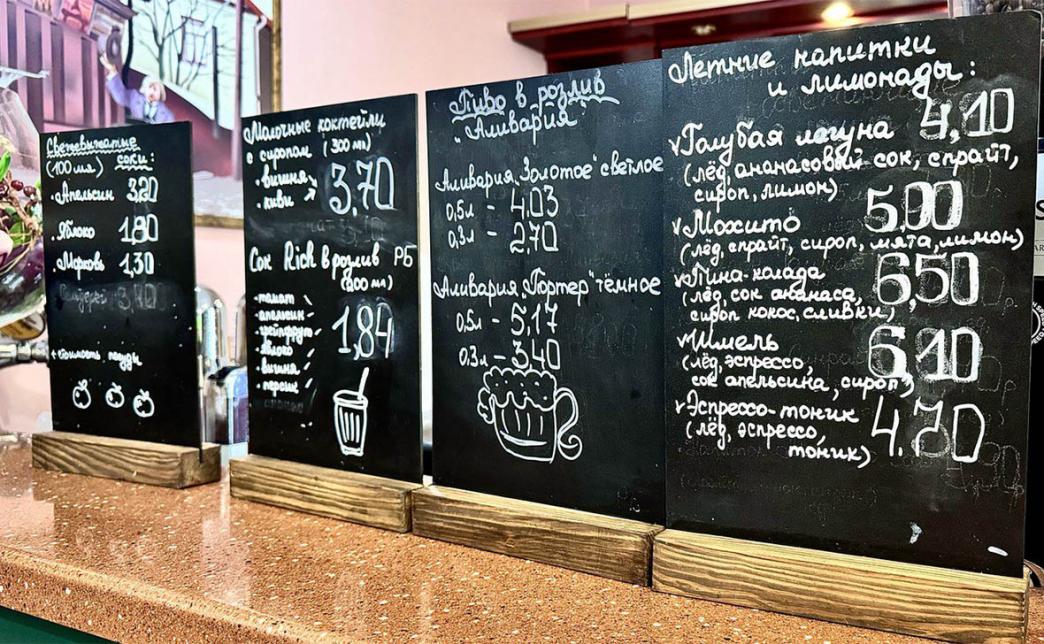 Свежевыжатые
(100 мл) соки:
• Апельсин 3,20
• Яблоко 1,80
• Морковь 1,30
+ стоимость посуды
Молочные коктейли
с сиропом (300 мл)
• вишня
• киви
3,70
Сок Rich в розлив РБ
(200 мл)
• томат
• апельсин
• грейпфрут
• яблоко
• вишня
• персик
1,84
Пиво в розлив
"Аливария"
Аливария „Золотое" светлое
0,5л - 4,03
0,3л - 2,70
Аливария „Портер" тёмное
0,5л - 5,17
0,3л - 3,40
Летние напитки
и лимонады:
Голубая лагуна 4,10
(лёд, ананасовый сок, спрайт,
сироп, лимон)
Мохито 5,00
(лёд, спрайт, сироп, мята, лимон)
Пина-колада 6,50
(лёд, сок ананаса,
сироп кокос, сливки)
Шмель 6,10
(лёд, эспрессо,
сок апельсина, сироп)
Эспрессо-тоник 4.70
(лёд, эспрессо,
тоник)